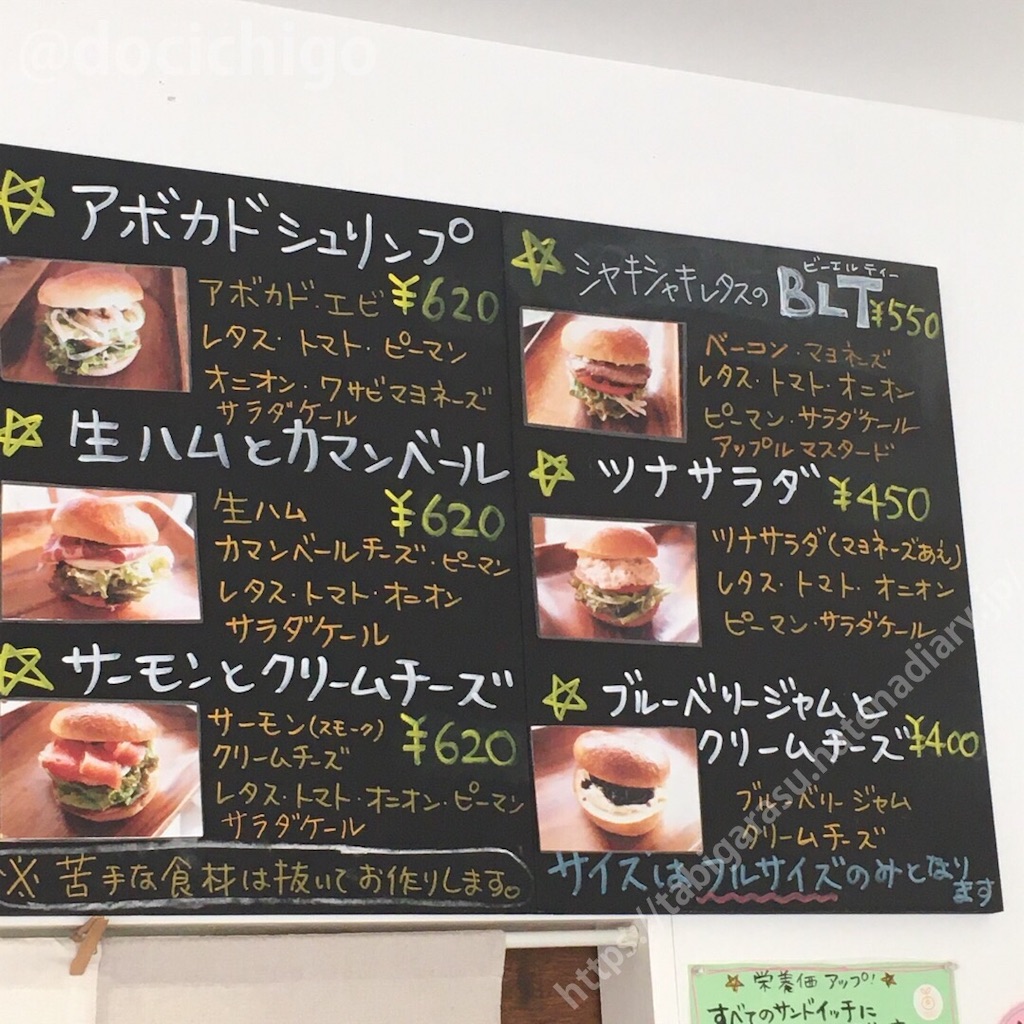 @docichigo
アボカドシュリンプ
アボカド・エビ ¥620
レタス・トマト・ピーマン
オニオン・ワサビマヨネーズ
サラダケール
生ハムとカマンベール
生ハム ¥620
カマンベールチーズ・ピーマン
レタス・トマト・オニオン
サラダケール
サーモンとクリームチーズ
サーモン(スモーク) ¥620
クリームチーズ
レタス・トマト・オニオン・ピーマン
サラダケール
※苦手な食材は抜いてお作りします。
ビーエルティー
シャキシャキレタスのBLT ¥550
ベーコン・マヨネーズ
レタス・トマト・オニオン
ピーマン・サラダケール
アップルマスタード
ツナサラダ ¥450
ツナサラダ(マヨネーズあえ)
レタス・トマト・オニオン
ピーマン・サラダケール
ブルーベリージャムと
クリームチーズ ¥400
ブルーベリージャム
クリームチーズ
サイズはフルサイズのみとなり
ます
栄養価アップ!
すべてのサンドイッチに
https://tabigarasu.hatenadiary.jp/